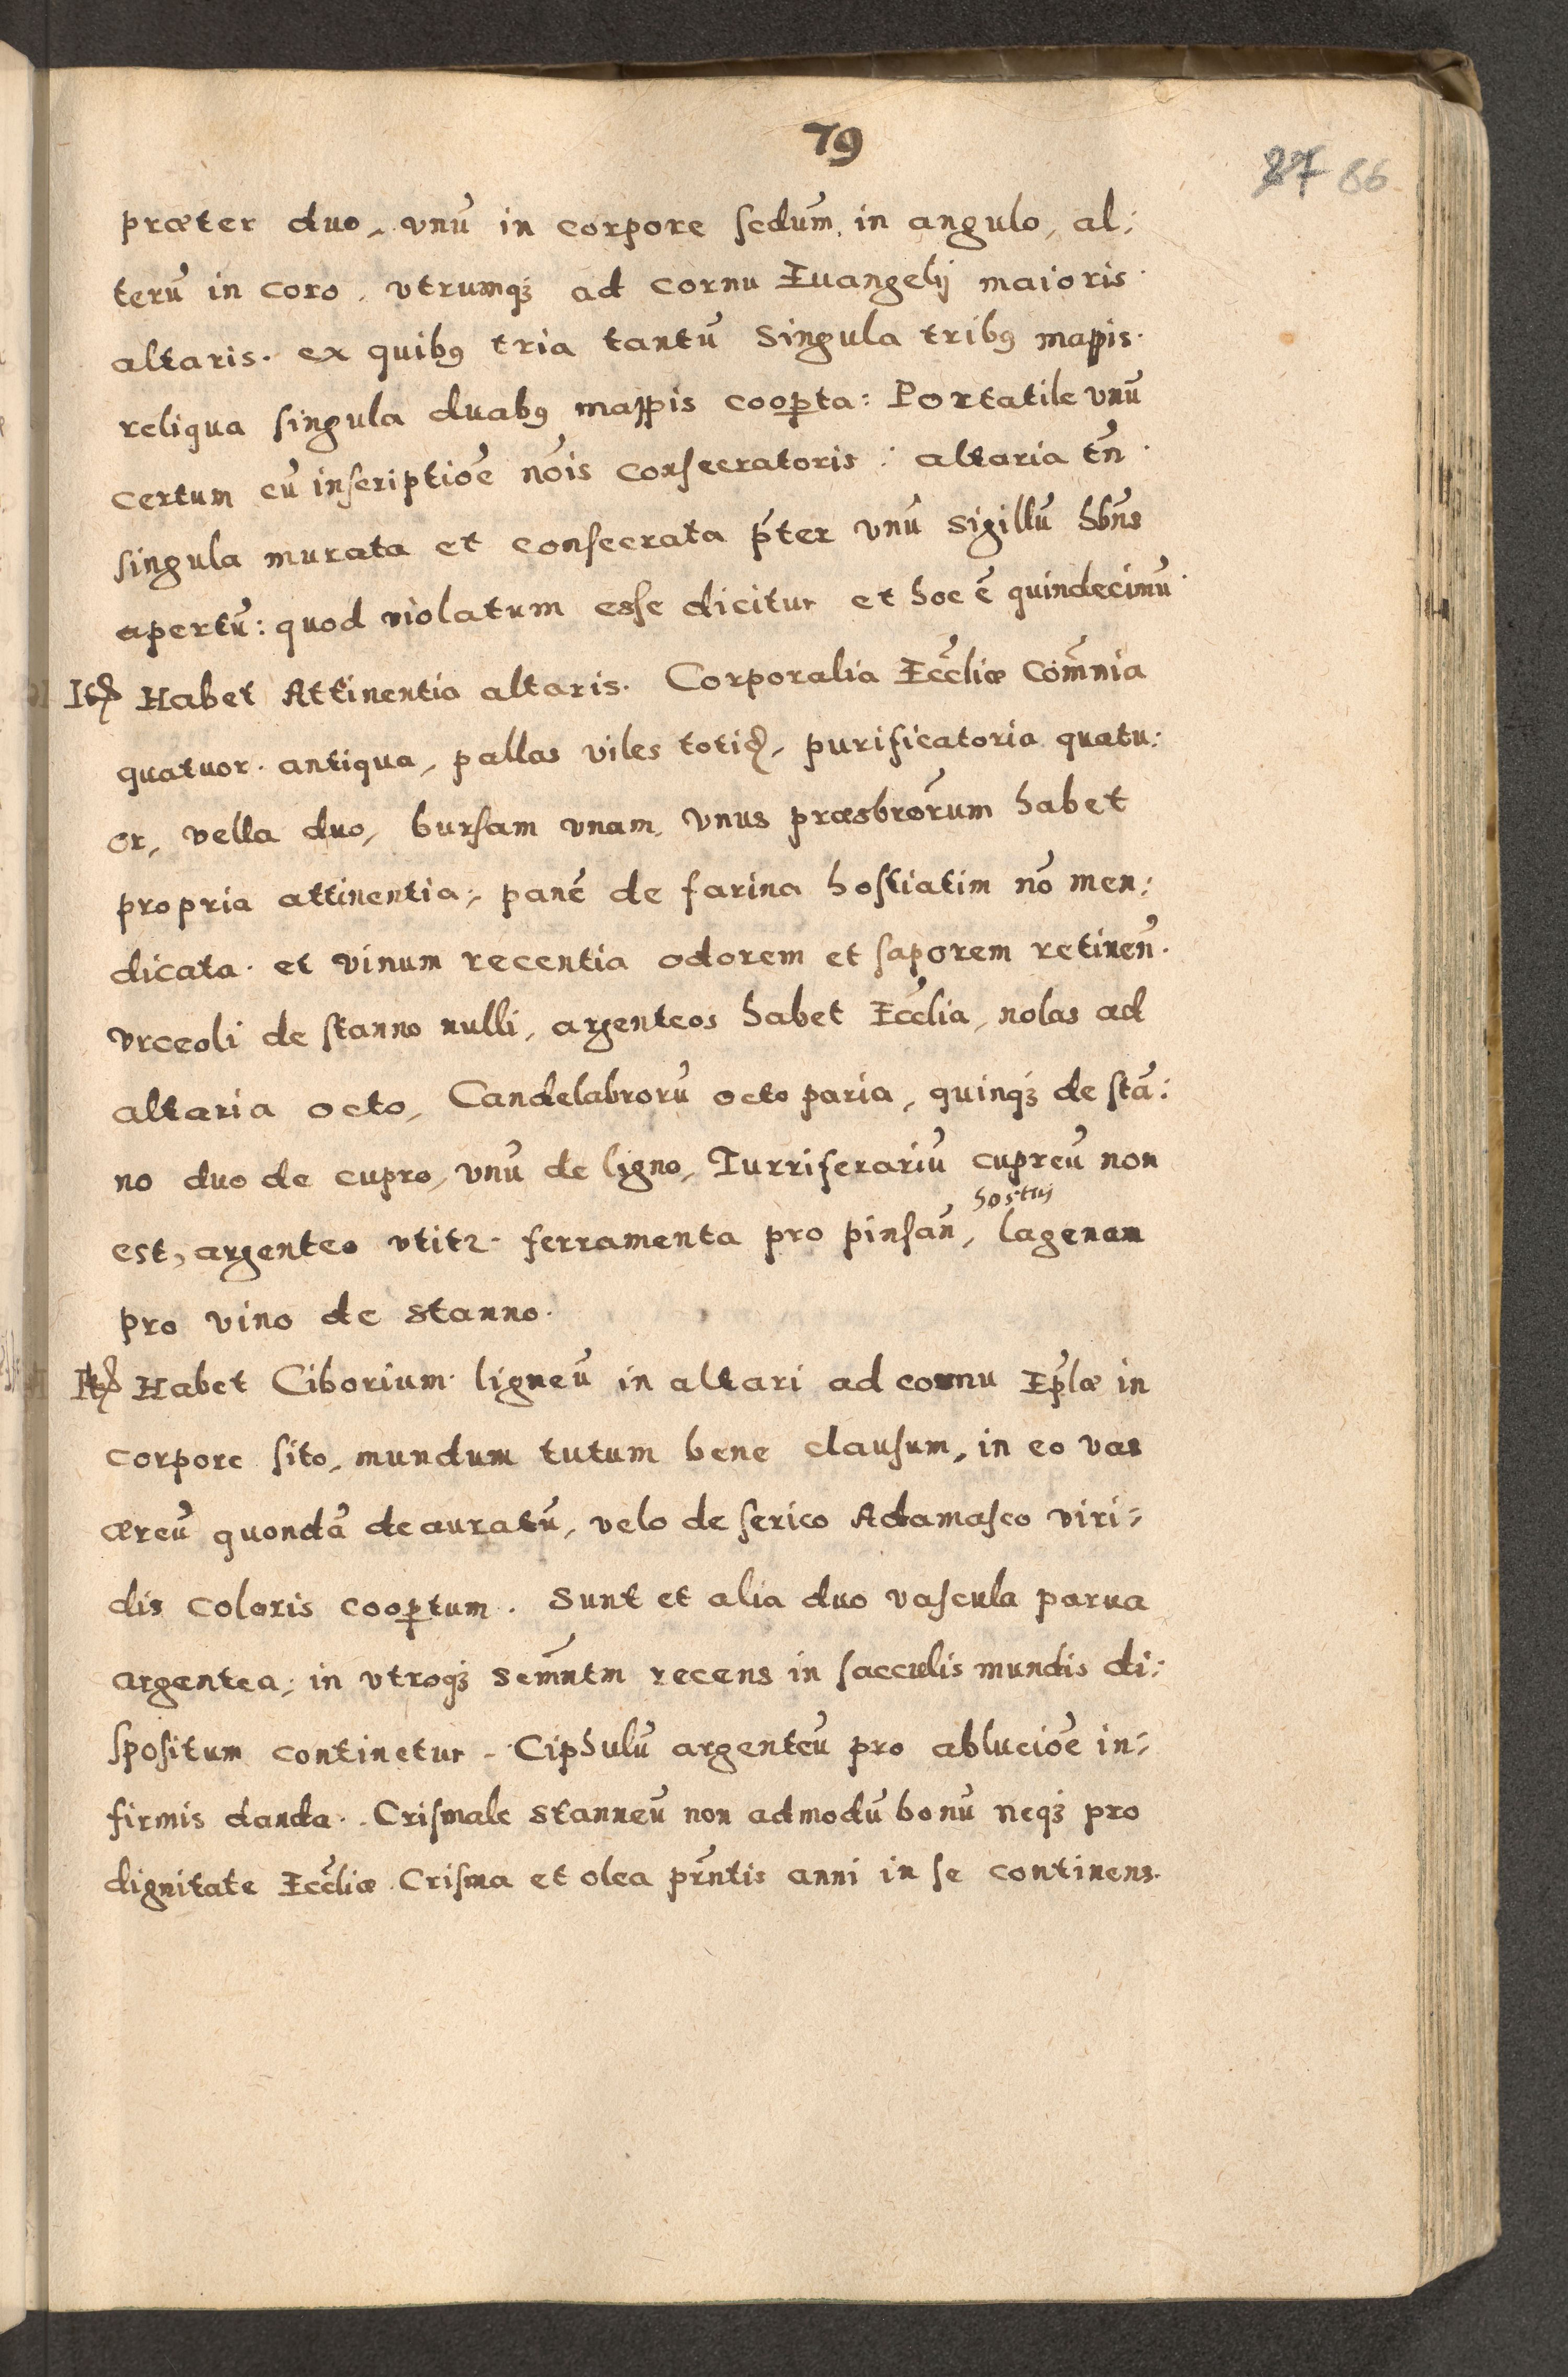 79
27 86
præter duo, vnũ in corpore sedum, in angulo, al:
terũ in coro, vtrumqȝ ad cornu Euangelij maioris
altaris. ex quibꝯ tria tantũ singula tribꝯ mapis.
reliqua singula duabꝯ mappis cooꝑta: Portatile vnũ
certum cũ inscriptiõe nõis consecratoris: altaria tñ
singula murata et consecrata p̃ter vnũ sigillũ hñs
apertũ: quod violatum esse dicitur et hoc ẽ quindecimũ
Itꝫ Habet Attinentia altaris. Corporalia Eccl̃iæ Com̃nia
quatuor. antiqua, pallas viles totiꝫ, purificatoria quatu:
or, vella duo, bursam vnam, vnus præsbrõrum habet
propria attinentia, panẽ de farina hostiatim nõ men:
dicata. et vinum recentia odorem et saporem retineñ.
vrceoli de stanno nulli, argenteos habet Eccl̃ia, nolas ad
altaria octo, Candelabrorũ octo paria, quinqȝ de stã:
no duo de cupro, vnũ de ligno, Turriferariũ cupreũ non
hostijs
est, argenteo vtitꝛ. ferramenta pro pinsañ, lagenam
pro vino de stanno.
Itꝫ Habet Ciborium ligneũ in altari ad cornu Ep̃læ in
corpore sito, mundum tutum bene clausum, in eo vas
æreũ quondã deauratũ, velo de serico Adamasco viri:
dis coloris cooꝑtum. Sunt et alia duo vascula parua
argentea, in vtroqȝ sem̃ntm recens in sacculis mundis di:
spositum continetur. Ciphulũ argenteũ pro abluciõe in:
firmis danda. Crismale stanneũ non admodũ bonũ neqȝ pro
dignitate Eccl̃iæ Crisma et olea pr̃ntis anni in se continens.